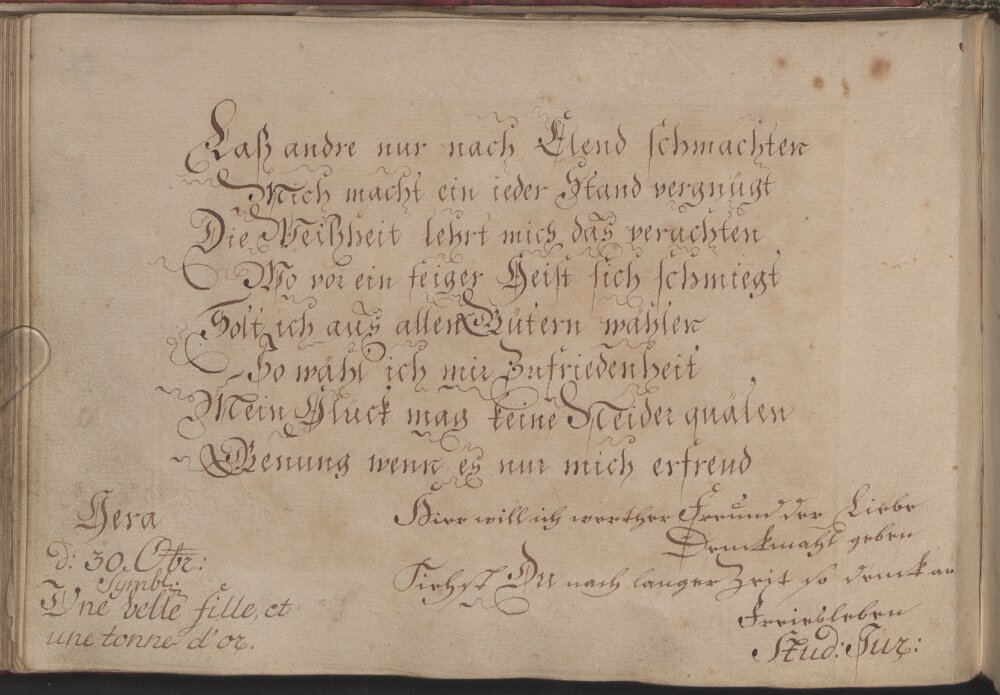 Laß andre nur nach Elend schmachten
Mich macht ein ieder Stand vergnügt
Die Weißheit lehrt mich das verachten
Wo vor ein feiger Geist sich schmiegt
Solt ich aus allen Gütern wählen
So wähl ich mir Zufriedenheit
Mein Glück mag keine Neider quälen
Genung wenn es nur mich erfreud
Gera
d: 30. Otbr:
Symbl:
Une belle fille, et
une tonne d'or.
Hier will ich werther Freund der Liebe
Denckmahl geben
Siehst Du nach langer Zeit so denck an
Freiesleben
Stud: Jur: